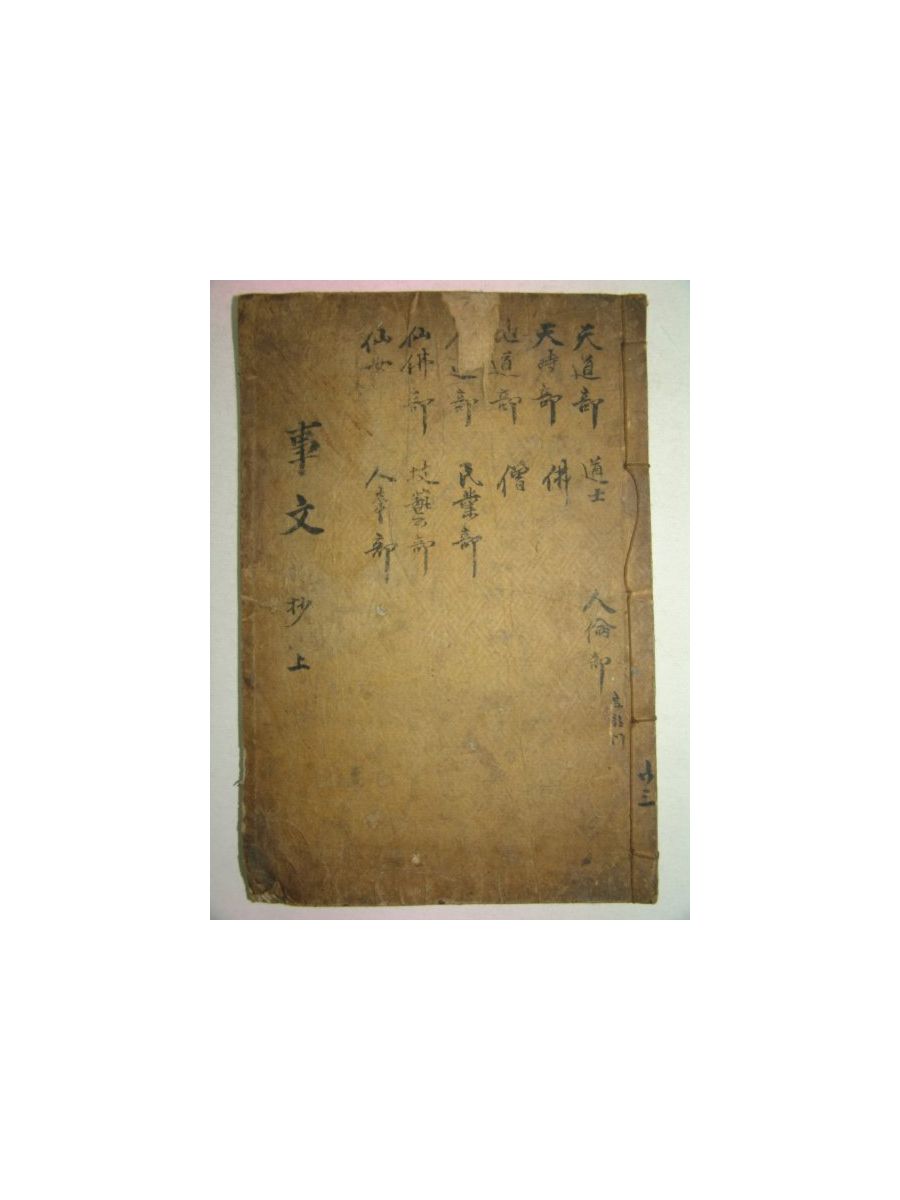 天道部 道士
天時部 佛
地道部 僧
人道部 民業部
仙佛部 技藝部
仙女 人事部
人倫部
事文抄 上